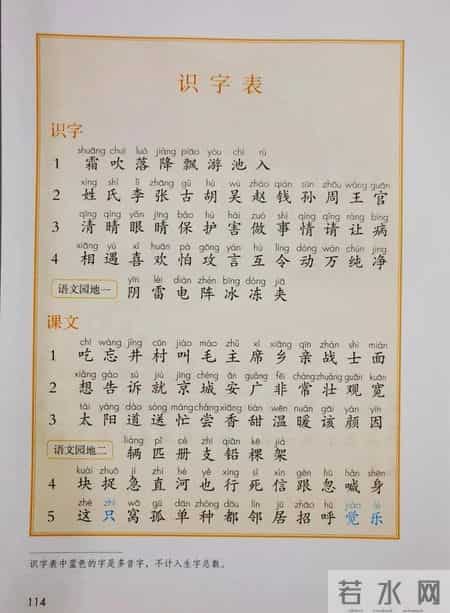 识字表
识字
shuāng chuī luò jiàng piāo yóu chí rù
1 霜 吹 落 降 飘 游 池 入
xìng shì lǐ zhāng gǔ hú wú zhào qián sūn zhōu wáng guān
2 姓 氏 李 张 古 胡 吴 赵 钱 孙 周 王 官
qīng qíng yǎn jīng bǎo hù hài zuò shì qíng qǐng ràng bìng
3 清 晴 眼 睛 保 护 害 做 事 情 请 让 病
xiāng yù xǐ huān pà gōng yán hù lìng dòng wàn chún jìng
4 相 遇 喜 欢 怕 攻 言 互 令 动 万 纯 净
yīn léi diàn zhèn bīng dòng jiā
语文园地一 阴 雷 电 阵 冰 冻 夹
课文
chī wàng jǐng cūn jiào máo zhǔ xí xiāng qīn zhàn shì miàn
1 吃 忘 井 村 叫 毛 主 席 乡 亲 战 士 面
xiǎng gào sù jiù jīng chéng ān guǎng fēi cháng zhuàng guān kuān
2 想 告 诉 就 京 城 安 广 非 常 壮 观 宽
tài yáng dào sòng máng cháng xiāng tián wēn nuǎn gāi yán yīn
3 太 阳 道 送 忙 尝 香 甜 温 暖 该 颜 因
liàng pǐ cè zhī qiān kē jià
语文园地二 辆 匹 册 支 铅 棵 架
kuài zhuō jí zhí hé yě xíng sǐ xìn gēn hū hǎn shēn
4 块 捉 急 直 河 也 行 死 信 跟 忽 喊 身
zhè zhǐ wō gū dān zhǒng dōu lín jū zhāo hū jiào lè
5 这 只 窝 孤 单 种 都 邻 居 招 呼 觉 乐
识字表中蓝色的字是多音字，不计入生字总数。
114
若水网